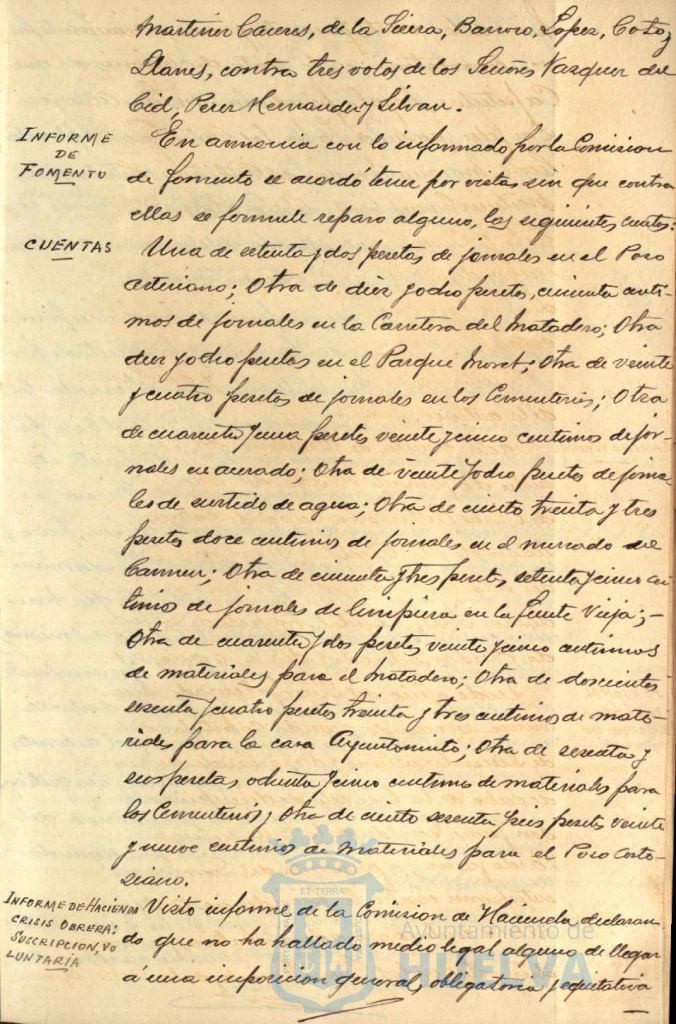 Martinez Caceres, de la Sierra, Barroso, Lopez, Coto y
Llanes, contra tres votos de los Señores Vazquez del
Cid, Perez Hernandez y Silvan.
INFORME
DE
FOMENTO
En armonia con lo informado por la Comision
de fomento se acordó tener por vistas sin que contra
ellas se formule reparo alguno, las siguientes cuentas:
CUENTAS
Una de setenta y dos pesetas de jornales en el Pozo
artesiano; Otra de diez y ocho pesetas, cincuenta centi-
mos de jornales en la Carretera del Matadero; Otra
diez y ocho pesetas en el Parque Moret; Otra de veinte
y cuatro pesetas de jornales en los Cementerios; Otra
de cuarenta y una pesetas veinte y cinco centimos de jor-
nales en acerado; Otra de veinte y ocho pesetas de jorna-
les de surtido de agua; Otra de ciento treinta y tres
pesetas doce centimos de jornales en el mercado del
Carmen; Otra de cincuenta y tres pesetas, setenta y cinco cen-
timos de jornales de limpieza en la Fuente Vieja;-
Otra de cuarenta y dos pesetas veinte y cinco centimos
de materiales para el Matadero; Otra de doscientas
sesenta y cuatro pesetas treinta y tres centimos de mate-
riales para la casa Ayuntamiento; Otra de sesenta y
seis pesetas ochenta y cinco centimos de materiales para
los Cementerios y Otra de ciento sesenta y seis pesetas veinte
y nueve centimos de materiales para el Pozo arte-
siano.
INFORME DE HACIENDA
CRISIS OBRERA:
SUSCRIPCION, VO
LUNTARIA
Visto informe de la Comision de Hacienda declaran
do que no ha hallado medio legal alguno de llegar
á una imposicion general, obligatoria y equitativa
ET TERRÆ
Ayuntamiento de
HUELVA